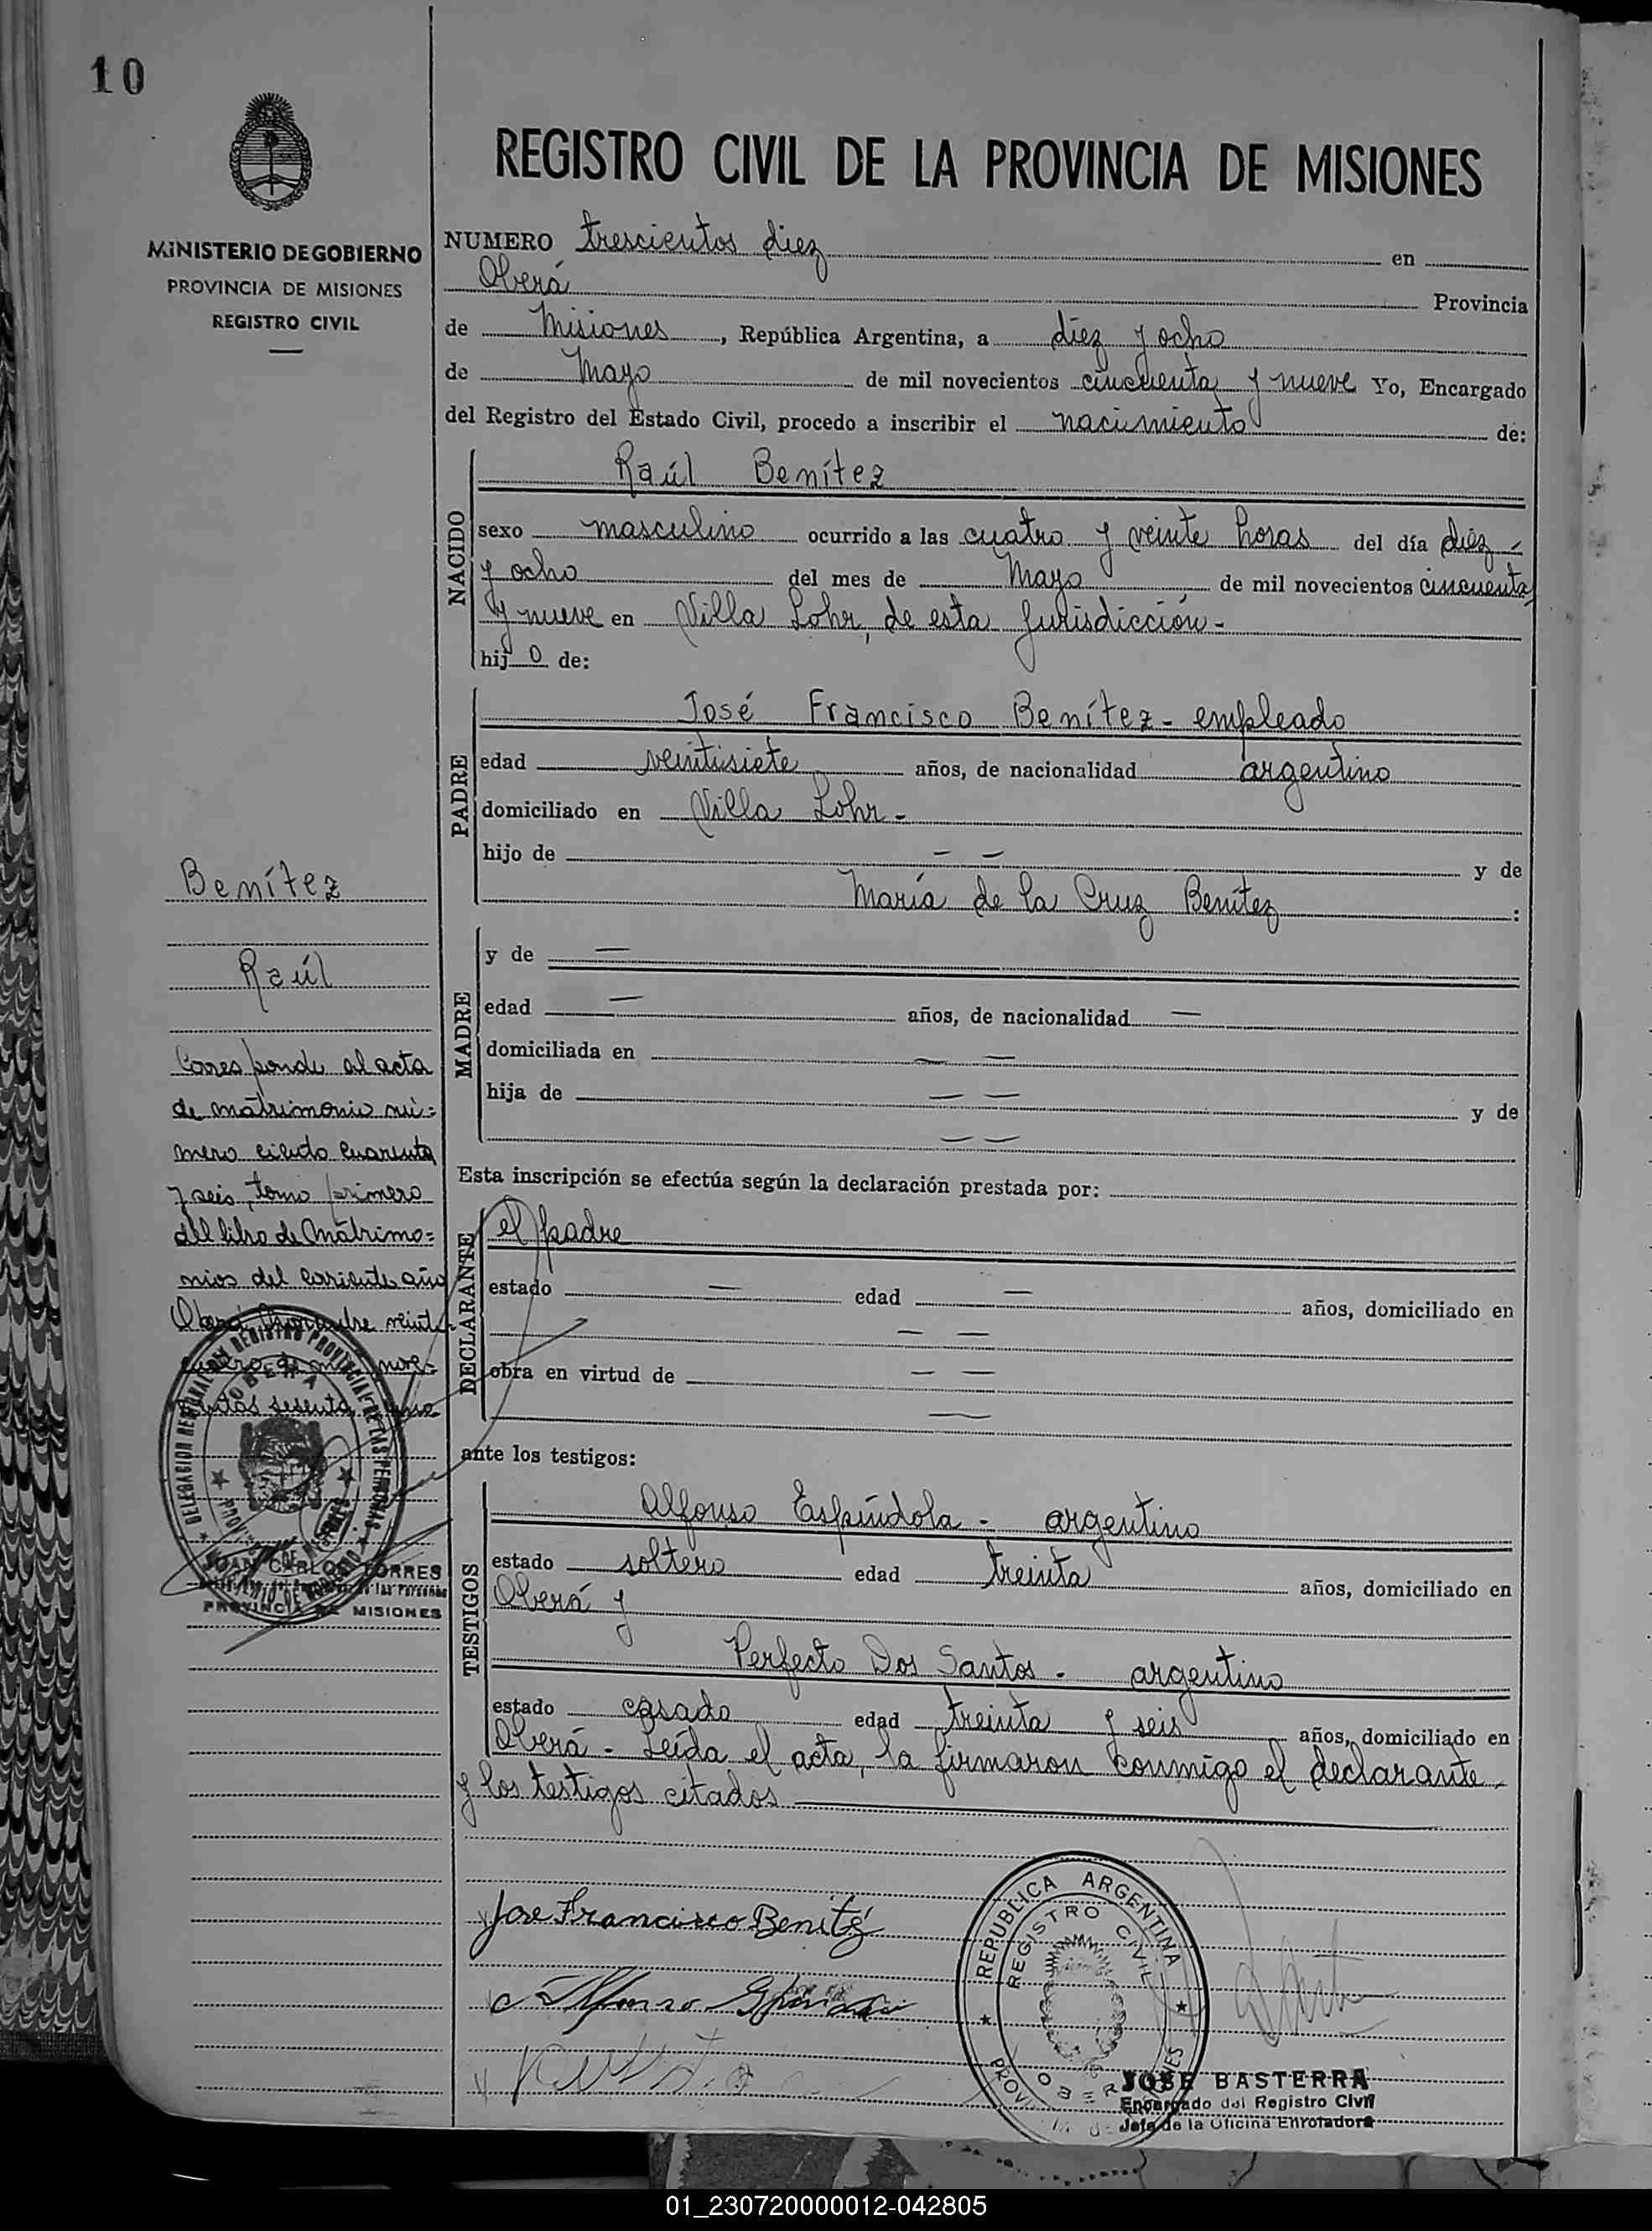 10
MINISTERIO DE GOBIERNO
PROVINCIA DE MISIONES
REGISTRO CIVIL
REGISTRO CIVIL DE LA PROVINCIA DE MISIONES
NUMERO trescientos diez en
Oberá Provincia
de Misiones, República Argentina, a diez y ocho
de Mayo de mil novecientos cincuenta y nueve Yo, Encargado
del Registro del Estado Civil, procedo a inscribir el nacimiento de:
NACIDO
Raúl Benítez
sexo masculino ocurrido a las cuatro y veinte horas del día diez
y ocho del mes de Mayo de mil novecientos cincuenta
y nueve en Villa Lohr, de esta Jurisdicción -
hijo de:
PADRE
José Francisco Benítez - empleado
edad veintisiete años, de nacionalidad argentino
domiciliado en Villa Lohr -
hijo de — — y de
María de la Cruz Benítez :
MADRE
y de —
edad — años, de nacionalidad —
domiciliada en — —
hija de — — y de
— —
Esta inscripción se efectúa según la declaración prestada por:
DECLARANTE
el padre
estado — edad — años, domiciliado en
— —
obra en virtud de — —
—
ante los testigos:
TESTIGOS
Alfonso Espíndola - argentino
estado soltero edad treinta años, domiciliado en
Oberá y
Perfecto Dos Santos - argentino
estado casado edad treinta y seis años, domiciliado en
Oberá - Leída el acta, la firmaron conmigo el declarante
y los testigos citados
Jose Francisco Benítez
Alfonso
REPUBLICA ARGENTINA
REGISTRO CIVIL
JOSE BASTERRA
Encargado del Registro Civil
Jefe de la Oficina Enroladora
Benítez
Raúl
Corresponde al acta
de matrimonio nú=
mero ciento cuarenta
y seis, tomo primero
del libro de Matrimo=
nios del corriente año
Oberá veinti
sesenta
DELEGACION REGISTRO PROVINCIAL DE LAS PERSONAS
OBERA
JUAN CARLOS TORRES
de las Personas
PROVINCIA DE MISIONES
01_230720000012-042805